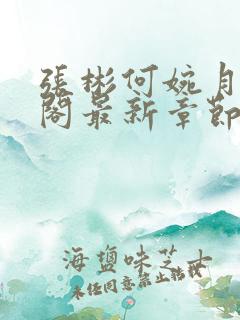 張彬何婉月
閣最新章節
海鹽味芝士
未经同意禁止转载